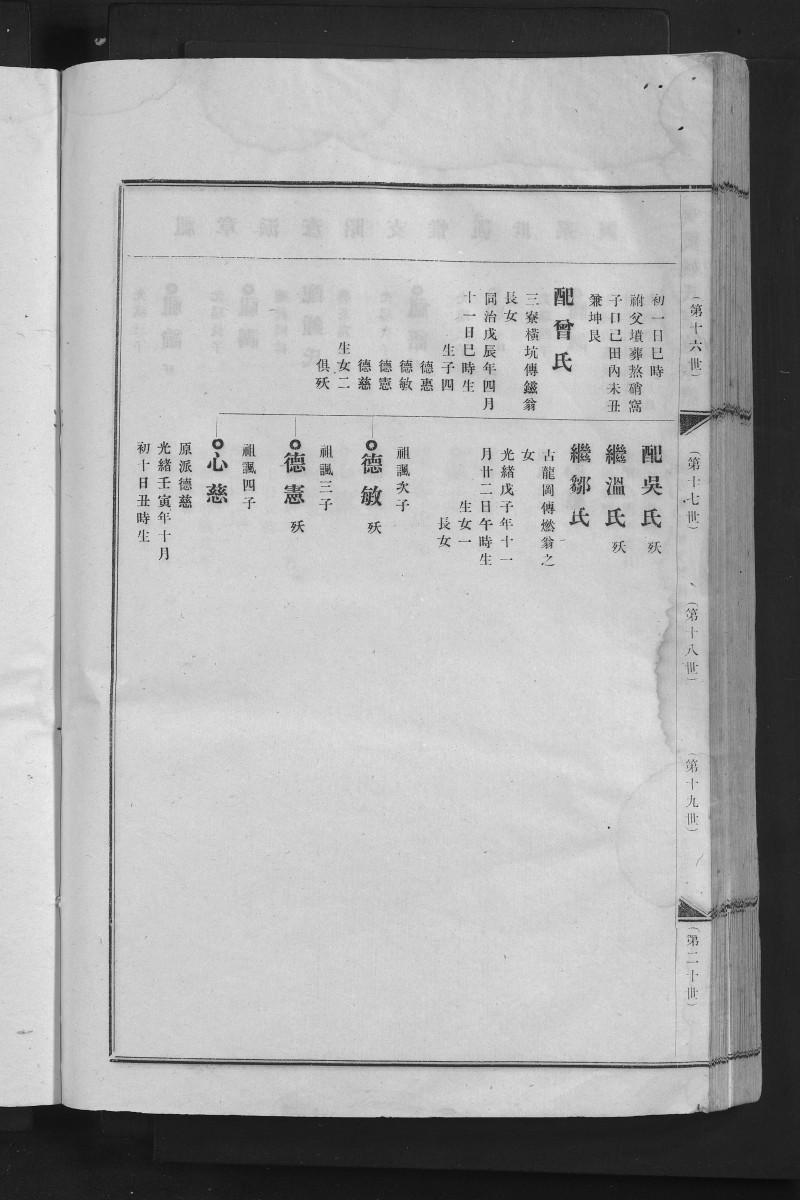 (第十六世)
初一日巳時
祔父墳葬熬硝窩
子口己田內未丑
兼坤艮
配曾氏
三寮橫坑傳鎡翁
長女
同治戊辰年四月
十一日巳時生
生子四
德惠
德敏
德憲
德慈
生女二
俱殀
(第十七世)
配吳氏 殀
繼溫氏 殀
繼鄒氏
古龍岡傳燃翁之
女
光緒戊子年十一
月廿二日午時生
生女一
長女
祖諷次子
德敏 殀
祖諷三子
德憲 殀
祖諷四子
心慈
原派德慈
光緒壬寅年十月
初十日丑時生
(第十八世)
(第十九世)
(第二十世)